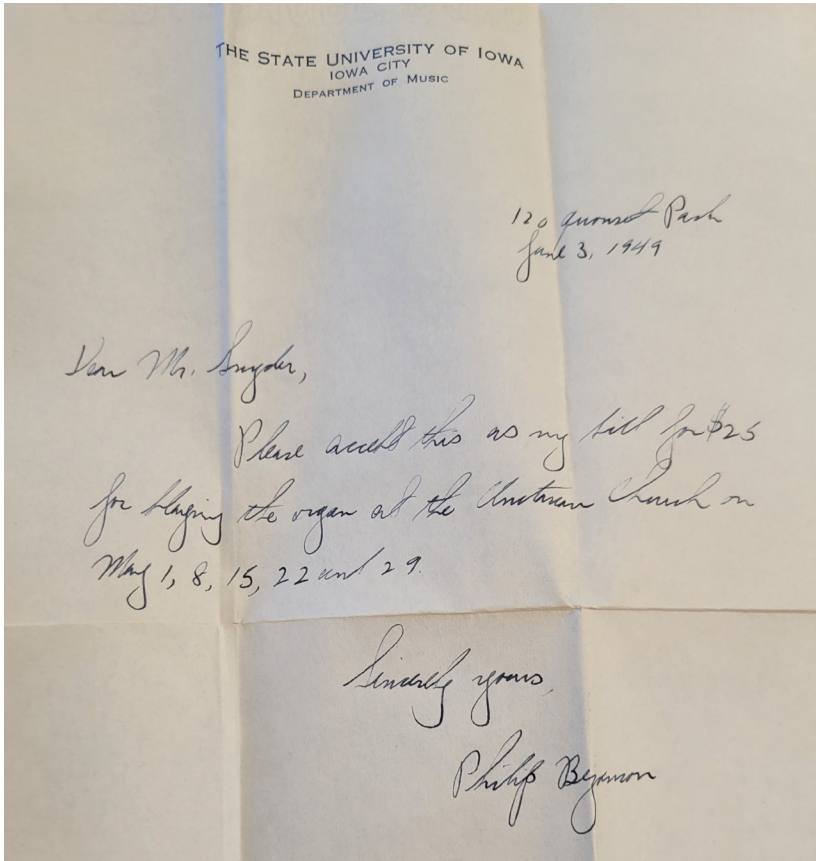 THE STATE UNIVERSITY OF IOWA
IOWA CITY
DEPARTMENT OF MUSIC
120 Quonset Park
June 3, 1949
Dear Mr. Snyder,
Please accept this as my bill for $25
for playing the organ at the Unitarian Church on
May 1, 8, 15, 22 and 29.
Sincerely yours,
Philip